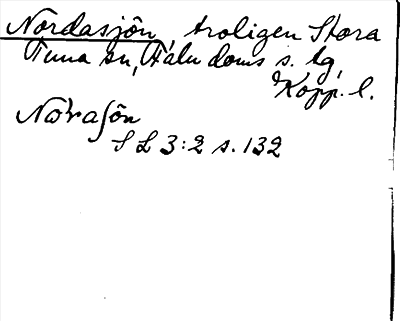 Nordasjön, troligen Stora
Tuna sn, Falu doms s. lg,
Kopp. l.
NoraSön
S L 3:2 s. 132